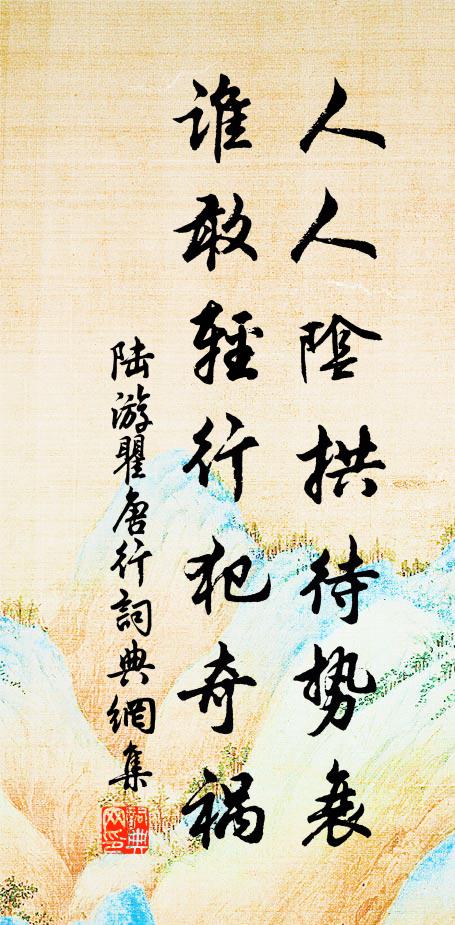 人人陰拱待势衰
誰敢輕行犯奇禍
陆游瞿唐行詞典網集
詞典网印